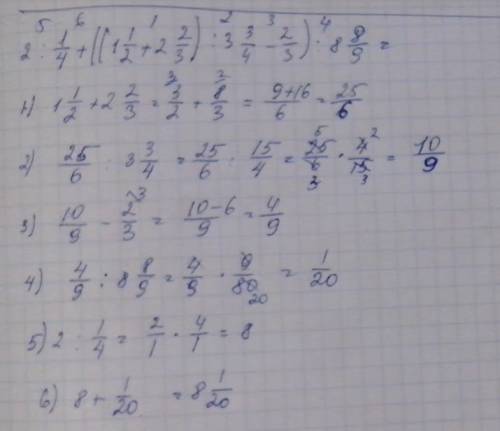 5 6 1 2 3 4
2 : 1/4 + ((1 1/2 + 2 2/3) : 3 3/4 - 2/3) : 8 8/9 =
1) 1 1/2 + 2 2/3 = 3/2 + 8/3 = 9+16/6 = 25/6
2) 25/6 : 3 3/4 = 25/6 : 15/4 = 25/6 · 4/15 = 10/9
3) 10/9 - 2/3 = 10-6/9 = 4/9
4) 4/9 : 8 8/9 = 4/9 · 9/80 = 1/20
5) 2 : 1/4 = 2/1 · 4/1 = 8
6) 8 + 1/20 = 8 1/20